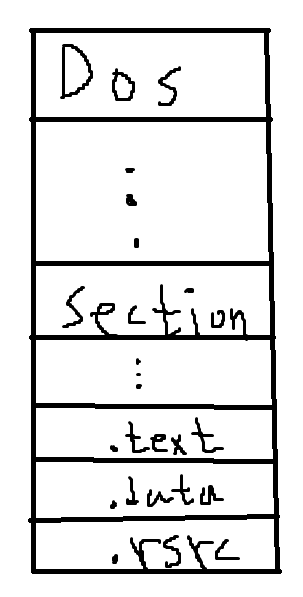 Dos
⋮
Section
⋮
.text
.data
.rsrc